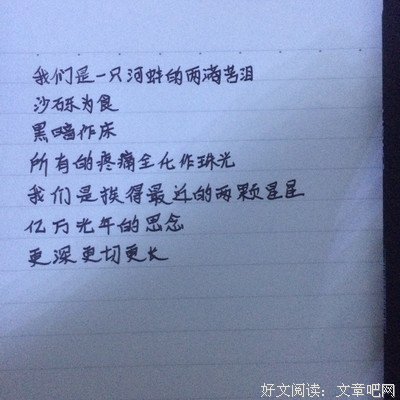 我们是一只河蚌的两滴苦泪
沙石砾为食
黑暗作床
所有的疼痛全化作珠光
我们是挨得最近的两颗星星
亿万光年的思念
更深更切更长
好文阅读：文章吧网